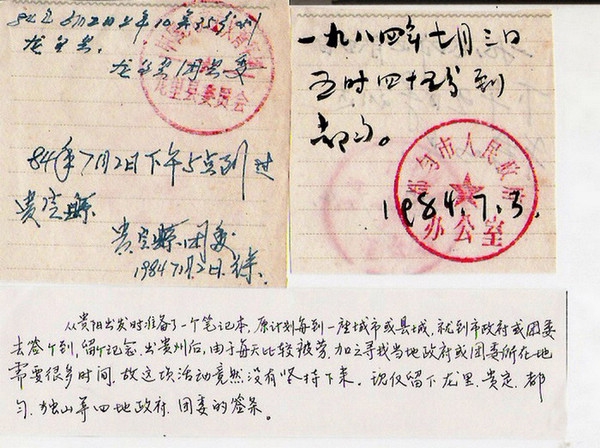 84年7月2日上午10年35分到
龙里县。
龙里县团县委
龙里县委员会
84年7月2日下午5点到过
贵定县
贵定县团委
1984年7月2日
一九八四年七月三日
五时四十五分到
都匀。
都匀市人民政府
1984.7.3.
办公室
从贵阳出发时准备了一个笔记本，原计划每到一座城市或县城，就到市政府或团委
去签个到，留个纪念，出贵州后，由于每天比较疲劳，加之寻找当地政府或团委所在地
需要很多时间，故这项活动竟然没有坚持下来。现仅留下龙里、贵定、都
匀、独山等四地政府、团委的签条。